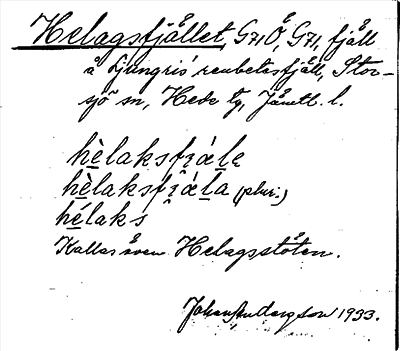 Helagsfjället, G71Ö, G71, fjäll
å Ljungris' renbetesfjäll, Stor-
sjö sn, Hede tg, Jämtl. l.
hèlaksfi̯ɑ́le
hèlaksfi̯ɑ́la (plur.)
hélaks
Kallas även Helagsstöten.
Johan Anderson 1933.